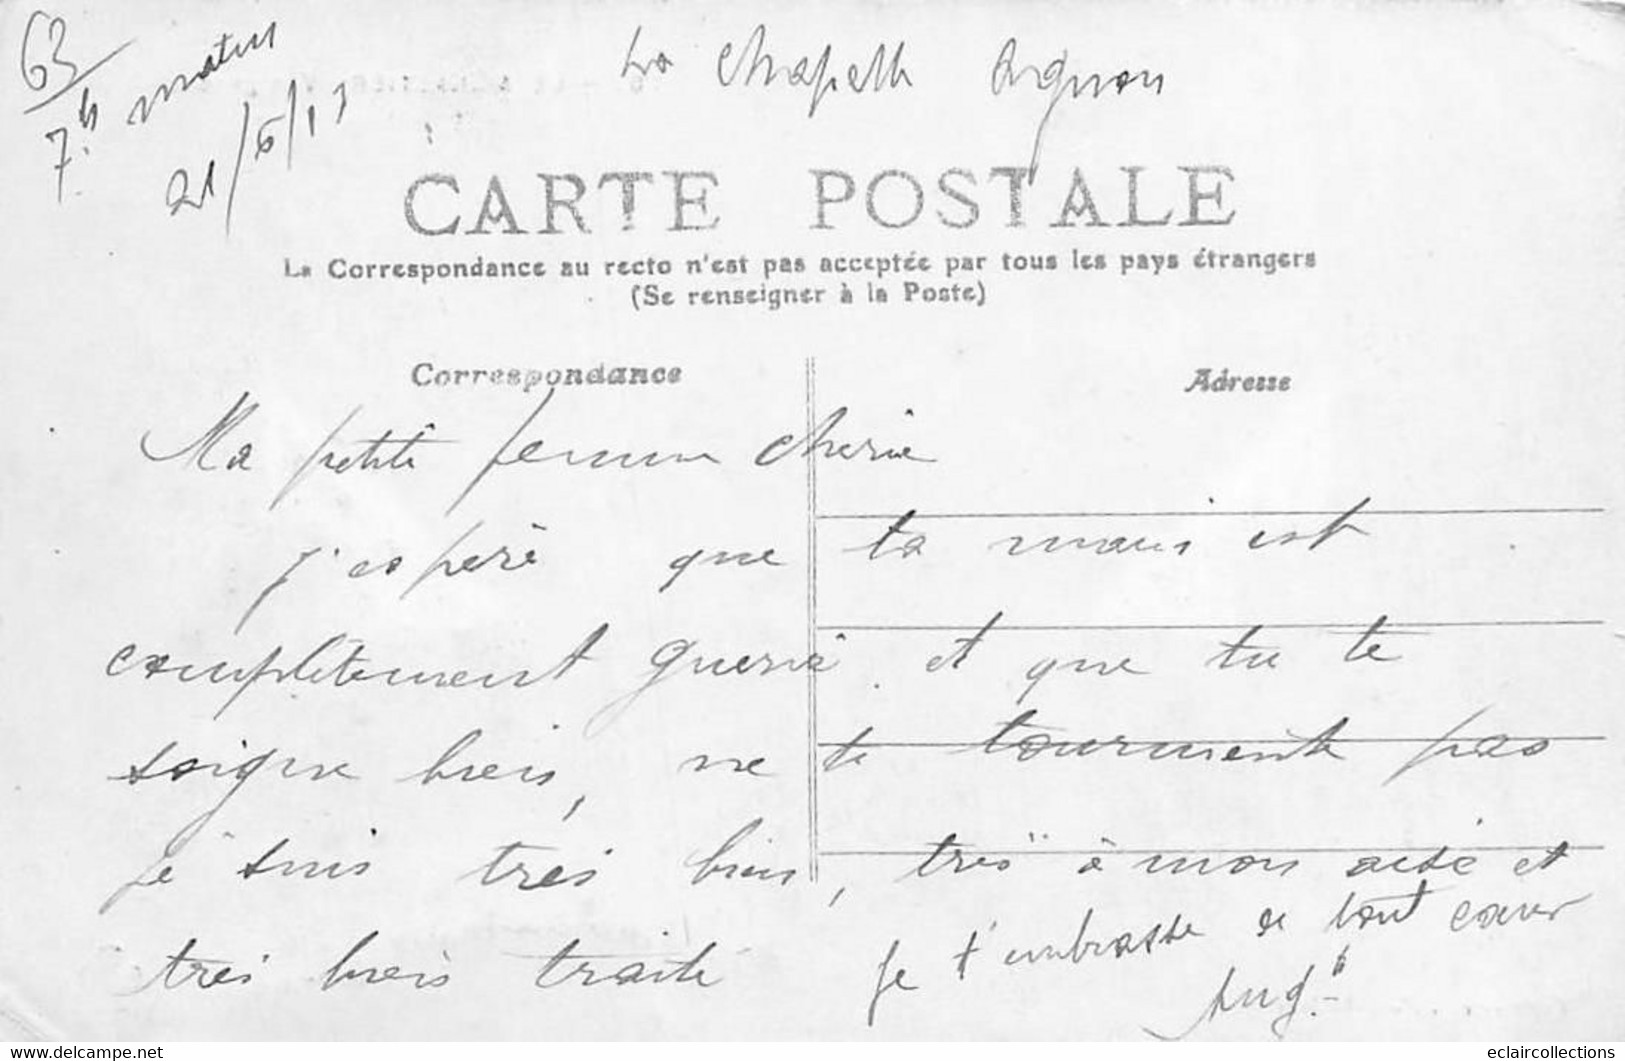 63
7h matin
21/6/13
La Chapelle Agnon
CARTE POSTALE
La Correspondance au recto n'est pas acceptée par tous les pays étrangers
(Se renseigner à la Poste)
Correspondance
Adresse
Ma petite femme chérie
j'espère que ta main est
complètement guérie et que tu te
soigne bien, ne te tourmente pas
je suis très bien, très à mon aise et
très bien traité
je t'embrasse de tout coeur
Aug.te
eclaircollections